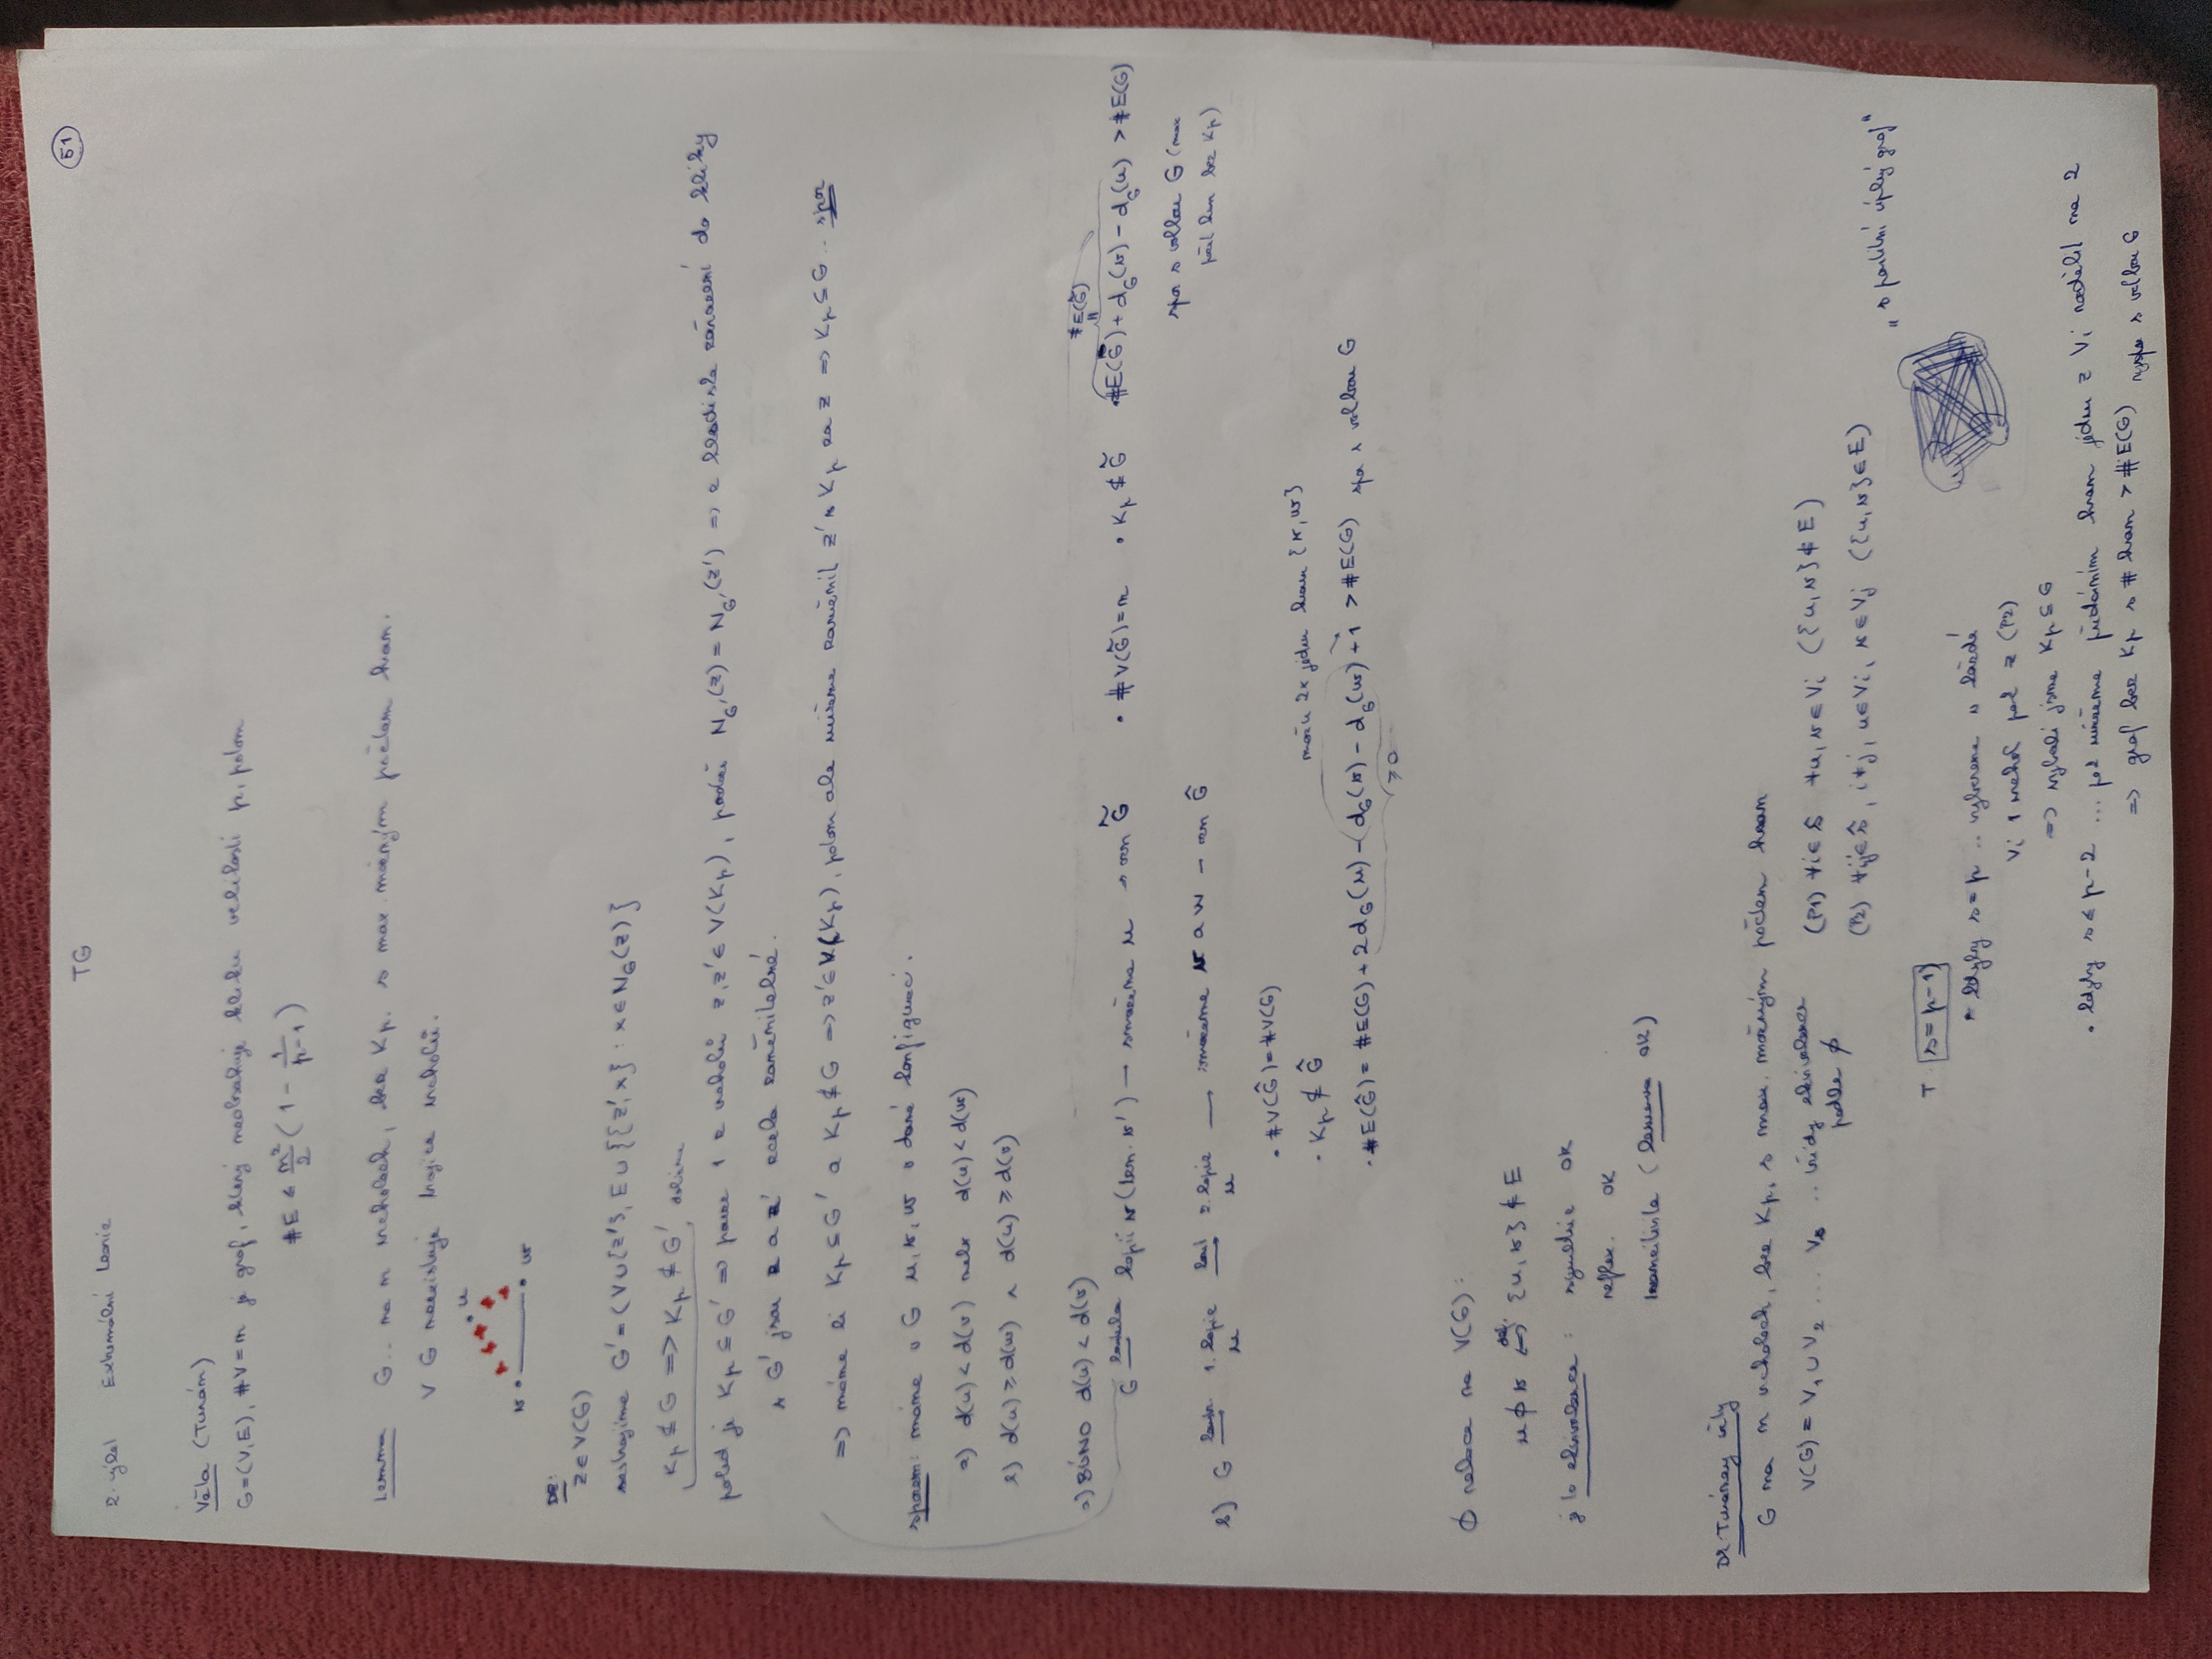 51
TG
2. týd Extremální teorie
Věta (Turán)
G=(V,E), #V=n je graf, který neobsahuje kliku velikosti p, potom
#E ≤ n²/2 (1 - 1/(p-1))
Lemma G.. na n vrcholech, bez Kp. s max. možným počtem hran.
V G neexistuje trojice vrcholů.
u
v w
Dk:
z ∈ V(G)
sestrojíme G'=(V∪{z'}, E∪{{z',x} : x∈N_G(z)}
Kp ⊄ G => Kp ⊄ G',
pokud je Kp ⊆ G' => pouze 1 z vrcholů z,z' ∈ V(Kp), protože N_G'(z) = N_G'(z') => z hlediska zařazení do kliky
v G' jsou z a z' zcela zaměnitelné.
=> máme li Kp ⊆ G' a Kp ⊄ G => z' ∈ V(Kp), potom ale můžeme zaměnit z' v Kp za z => Kp ⊆ G .. spor
sporem: máme v G u,v,w v dané konfiguraci.
a) d(u) < d(v) nebo d(u) < d(w)
b) d(u) ≥ d(w) ∧ d(u) ≥ d(v)
a) BÚNO d(u) < d(v)
G kopií v (tzn. v') → smažeme u → G̃ • #V(G̃)=n • Kp ⊄ G̃ #E(G)+d_G(v) - d_G(u) > #E(G)
#E(G̃)
=
spor s volbou G (max
počet hran bez Kp)
b) G 1. kopie u 2. kopie u → smažeme v a w Ĝ
• #V(Ĝ)=#V(G)
• Kp ⊄ Ĝ
2x jednu hranu {v,w}
• #E(Ĝ) = #E(G) + 2d_G(u) - (d_G(v) - d_G(w)) + 1 > #E(G) spor s volbou G
≥0
ϕ relace na V(G):
u ϕ v def. <=> {u,v} ∉ E
je to ekvivalence : symetrie OK
reflex. OK
tranzitivita (lemma OK)
Dk Turánovy věty
G na n vrcholech, bez Kp, s max. možným počtem hran
V(G) = V1 ∪ V2 ... Vs .. třídy ekvivalence
podle ϕ
(P1) ∀i∈ŝ ∀u,v∈Vi ({u,v}∉E)
(P2) ∀i,j∈ŝ, i≠j, u∈Vi, v∈Vj ({u,v}∈E)
„s partitní úplný graf"
T: s=p-1
• kdyby s=p .. vybereme v každé
Vi 1 vrchol pak z (P2)
=> vybrali jsme Kp ⊆ G
• kdyby s ≤ p-2 ... pak můžeme přidáním hran jednu z Vi rozdělit na 2
=> graf bez Kp s # hran > #E(G) spor s volbou G